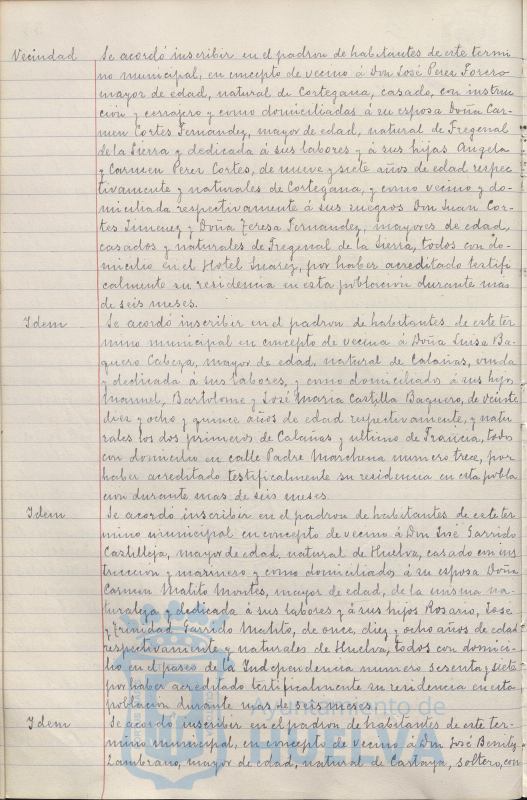 Vecindad Se acordó inscribir en el padron de habitantes de este termi
no municipal, en concepto de vecino á Don José Perez Forero
mayor de edad, natural de Cortegana, casado, con instruc
ción y cerrajero y como domiciliadas á su esposa Doña Car-
men Cortes Fernandez, mayor de edad, natural de Fregenal
de la Sierra y dedicada á sus labores y á sus hijas Angela
y Carmen Perez Cortes, de nueve y siete años de edad respec
tivamente y naturales de Cortegana, y como vecino y do-
miciliada respectivamente á sus suegros Don Juan Cor-
tes Jimenez y Doña Teresa Fernandez, mayores de edad,
casados y naturales de Fregenal de la Sierra, todos con do-
micilio en el Hotel Suarez, por haber acreditado testifi-
calmente su residencia en esta poblacion durante mas
de seis meses.
Idem Se acordó inscribir en el padron de habitantes de este ter
mino municipal en concepto de vecina á Doña Luisa Ba-
quero Cabeza, mayor de edad, natural de Calañas, viuda
y dedicada á sus labores, y como domiciliados á sus hijos
Manuel, Bartolome y José Maria Castilla Baquero, de veinte
diez y ocho y quince años de edad respectivamente, y natu
rales los dos primeros de Calañas y ultimo de Francia, todos
con domicilio en calle Padre Marchena numero trece, por
haber acreditado testificalmente su residencia en esta pobla
cion durante mas de seis meses.
Idem Se acordó inscribir en el padron de habitantes de este ter
mino municipal en concepto de vecino á Don José Garrido
Castilleja, mayor de edad, natural de Huelva, casado con ins
truccion y marinero y como domiciliados á su esposa Doña
Carmen Matito Montes, mayor de edad, de la misma na-
turaleza y dedicada á sus labores y á sus hijos Rosario, Jose
y Trinidad Garrido Matito, de once, diez y ocho años de edad
respectivamente y naturales de Huelva, todos con domici-
lio en el paseo de la Independencia numero sesenta y siete
por haber acreditado testificalmente su residencia en esta
poblacion durante mas de seis meses.
Idem Se acordó inscribir en el padron de habitantes de este ter-
mino municipal, en concepto de vecino á Don José Benitez
Zambrano, mayor de edad, natural de Cartaya, soltero, con
Ayuntamiento de
HUELVA